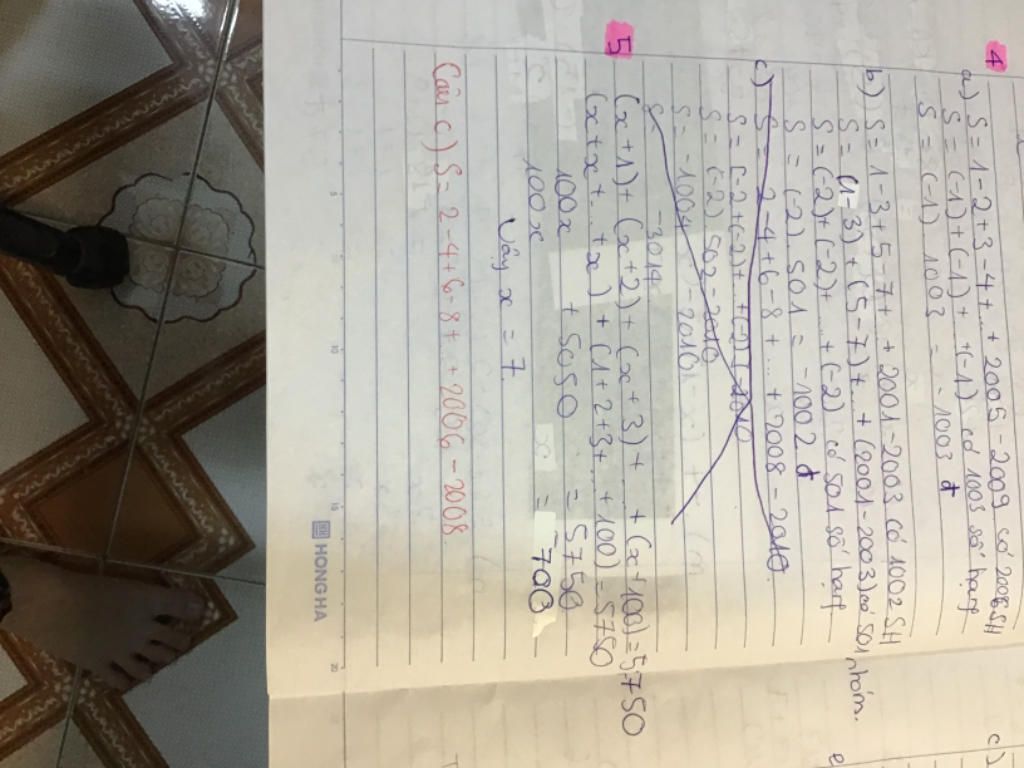 4
a) S = 1 - 2 + 3 - 4 + ... + 2005 - 2009 có 2006 SH
S = (-1) + (-1) + ... + (-1) có 1003 số hạng
S = (-1) 1003 = - 1003 đ
b) S = 1 - 3 + 5 - 7 + ... + 2001 - 2003 có 1002 SH
S = (1 - 3) + (5 - 7) + ... + (2001 - 2003) có 501 nhóm.
S = (-2) + (-2) + ... + (-2) có 501 số hạng
S = (-2) . 501 = - 1002 đ
c) S = 2 - 4 + 6 - 8 + ... + 2008 - 2010
S = (-2 + (-2) + ... + (-2) - 2010
S = (-2) 502 - 2010
S = - 1004 - 2010
S - 3014
5
(x + 1) + (x + 2) + (x + 3) + ... + (x + 100) = 5750
(x + x + ... + x) + (1 + 2 + 3 + ... + 100) = 5750
100 x + 5050 = 5750
100 x = 700
Vậy x = 7
Câu c) S = 2 - 4 + 6 - 8 + ... + 2006 - 2008
HONG HA